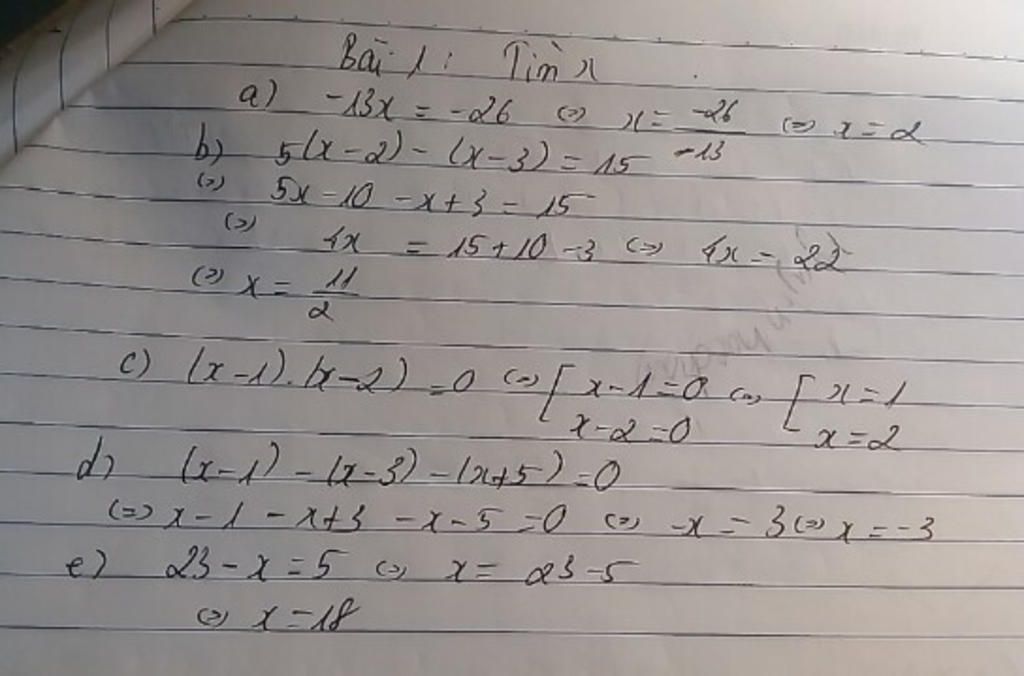 Bài 1: Tìm x
a) -13x = -26 <=> x = -26/-13 <=> x = 2
b) 5(x-2) - (x-3) = 15
<=> 5x - 10 - x + 3 = 15
<=> 4x = 15 + 10 - 3 <=> 4x = 22
<=> x = 11/2
c) (x-1).(x-2) = 0 <=> [ x-1 = 0 <=> [ x = 1
x-2 = 0 x = 2
d) (x-1) - (x-3) - (x+5) = 0
<=> x - 1 - x + 3 - x - 5 = 0 <=> -x = 3 <=> x = -3
e) 23 - x = 5 <=> x = 23 - 5
<=> x = 18